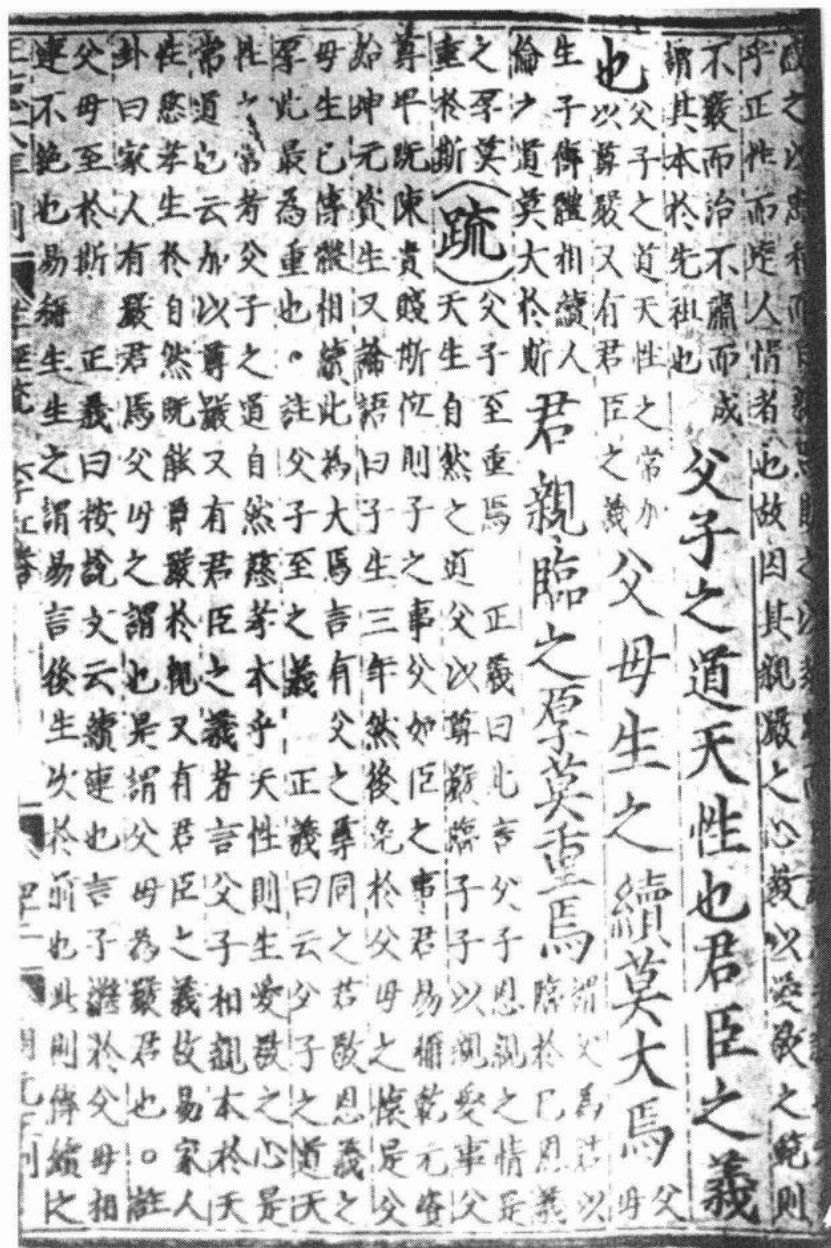 成之以
乎正性而達人情者也故因其親嚴之心敎以愛敬之範則
不嚴而治不肅而成
謂其本於先祖也
父子之道天性也君臣之義
也
父子之道天性之常加
以尊嚴又有君臣之義
父母生之續莫大焉
父
母
生子傳體相續人
倫之道莫大於斯
君親臨之厚莫重焉
謂父為君以
臨於己恩義
之厚莫
重於斯
疏
父子至重焉 正義曰此言父子恩親之情是
天生自然之道父以尊嚴臨子子以親愛事父
尊卑既陳貴賤斯位則子之事父如臣之事君易稱乾元資
始坤元資生又論語曰子生三年然後免於父母之懷是父
母生己傳體相續此為大焉言有父之尊同之君敬恩義之
厚此最為重也。註父子至之義 正義曰云父子之道天
性之常者父子之道自然慈孝本乎天性則生愛敬之心是
常道也云加以尊嚴又有君臣之義者言父子相親本於天
性慈孝生於自然既能尊嚴於親又有君臣之義故易家人
卦曰家人有嚴君焉父母之謂也是謂父母為嚴君也。註
父母至於斯 正義曰按說文云續連也言子繼於父母相
連不絕也易稱生生之謂易言後生次於前也此則傳續之